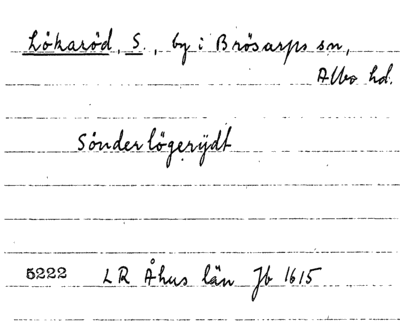 Lökaröd, S., by i Brösarps sn,
Albo hd.
Sönder lögerÿdt
5222 LR Åhus län Jb 1615